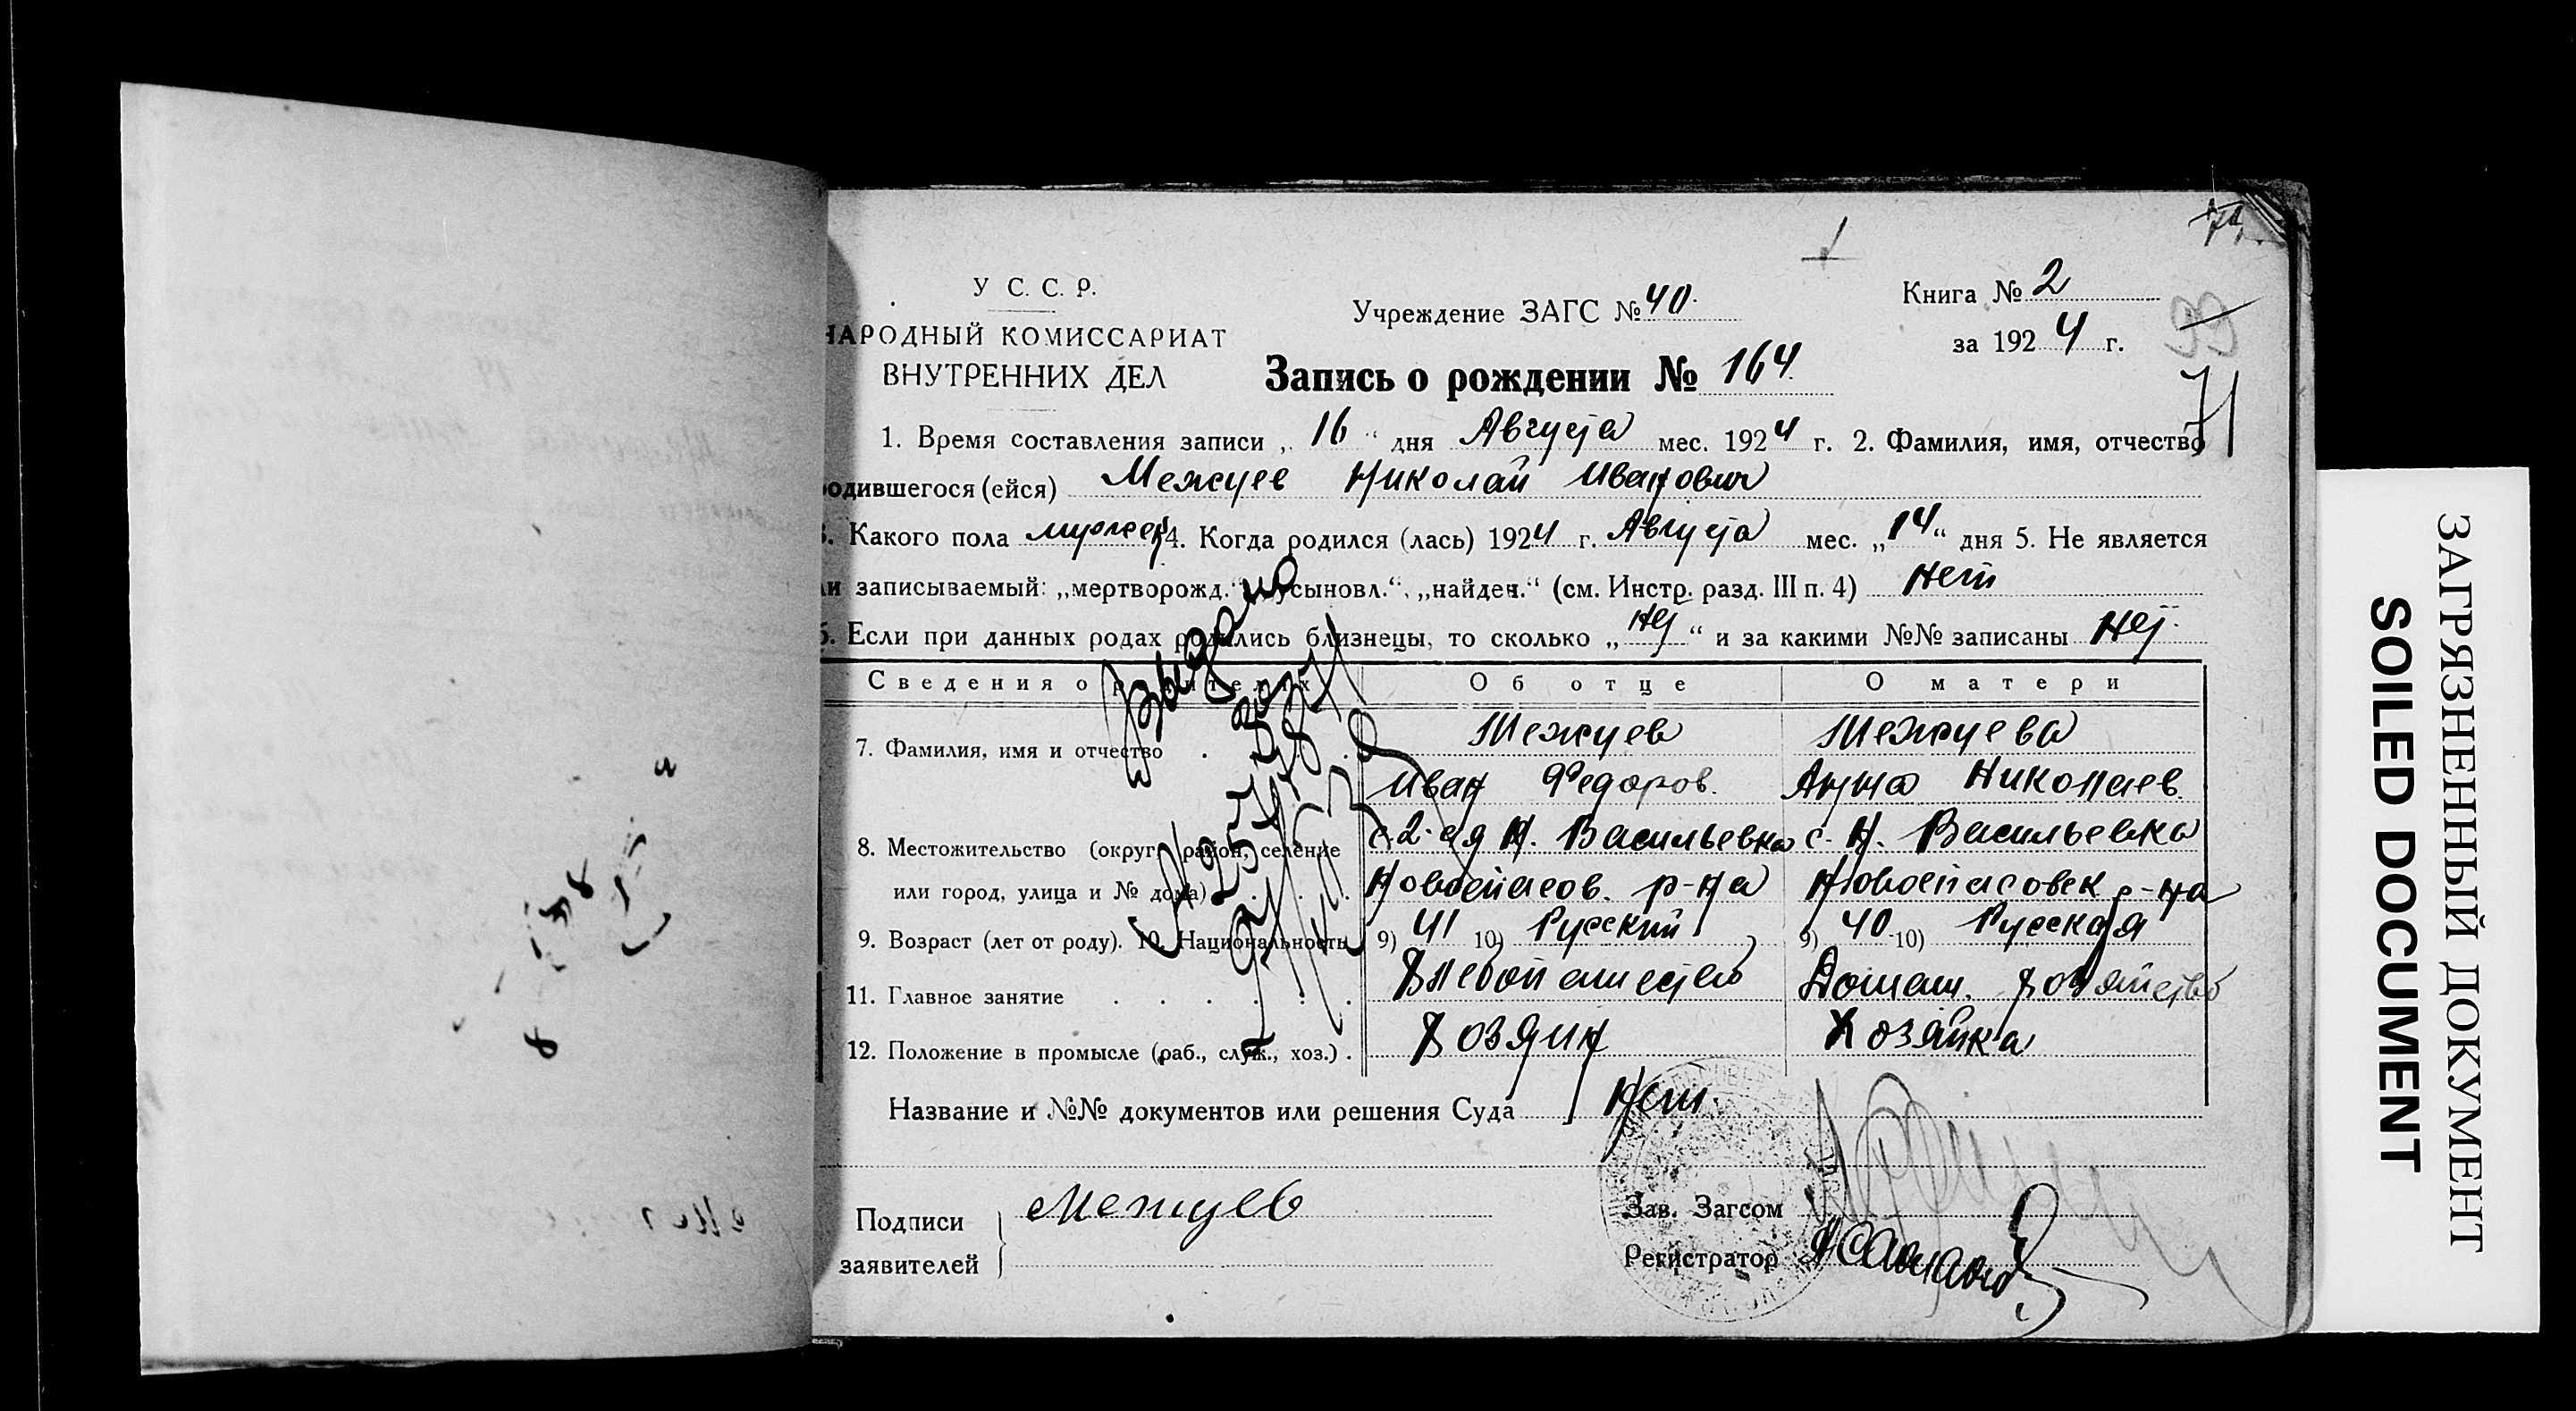 У С. С. Р.
НАРОДНЫЙ КОМИССАРИАТ
ВНУТРЕННИХ ДЕЛ
Учреждение ЗАГС № 40.
Книга № 2
за 1924 г.
99
71
Запись о рождении № 164.
1. Время составления записи „ 16 “ дня Августа мес. 1924 г. 2. Фамилия, имя, отчество
родившегося (ейся) Межуев Николай Иванович
3. Какого пола мужск 4. Когда родился (лась) 1924 г. Августа мес. „14“ дня 5. Не является
ли записываемый: „мертворожд.“ „усыновл.“, „найден.“ (см. Инстр. разд. III п. 4) нет
6. Если при данных родах родились близнецы, то сколько „нет“ и за какими №№ записаны нет.
Сведения о родителях Об отце О матери
7. Фамилия, имя и отчество Межуев Межуева
Иван Федоров. Анна Николаев.
8. Местожительство (округ, район, селение с. 2-ая Н. Васильевка с. Н. Васильевка
или город, улица и № дома) Новоспасов. р-на Новоспасовск р-на
9. Возраст (лет от роду). 10. Национальность 9) 41 10) Русский 9) 40 10) Русская
11. Главное занятие Хлебопашество Домаш. хозяйство
12. Положение в промысле (раб., служ., хоз.) Хозяин Хозяйка
Название и №№ документов или решения Суда Нет.
Подписи заявителей Межуев
Зав. Загсом
Регистратор
Выдано
ЗАГРЯЗНЕННЫЙ ДОКУМЕНТ
SOILED DOCUMENT